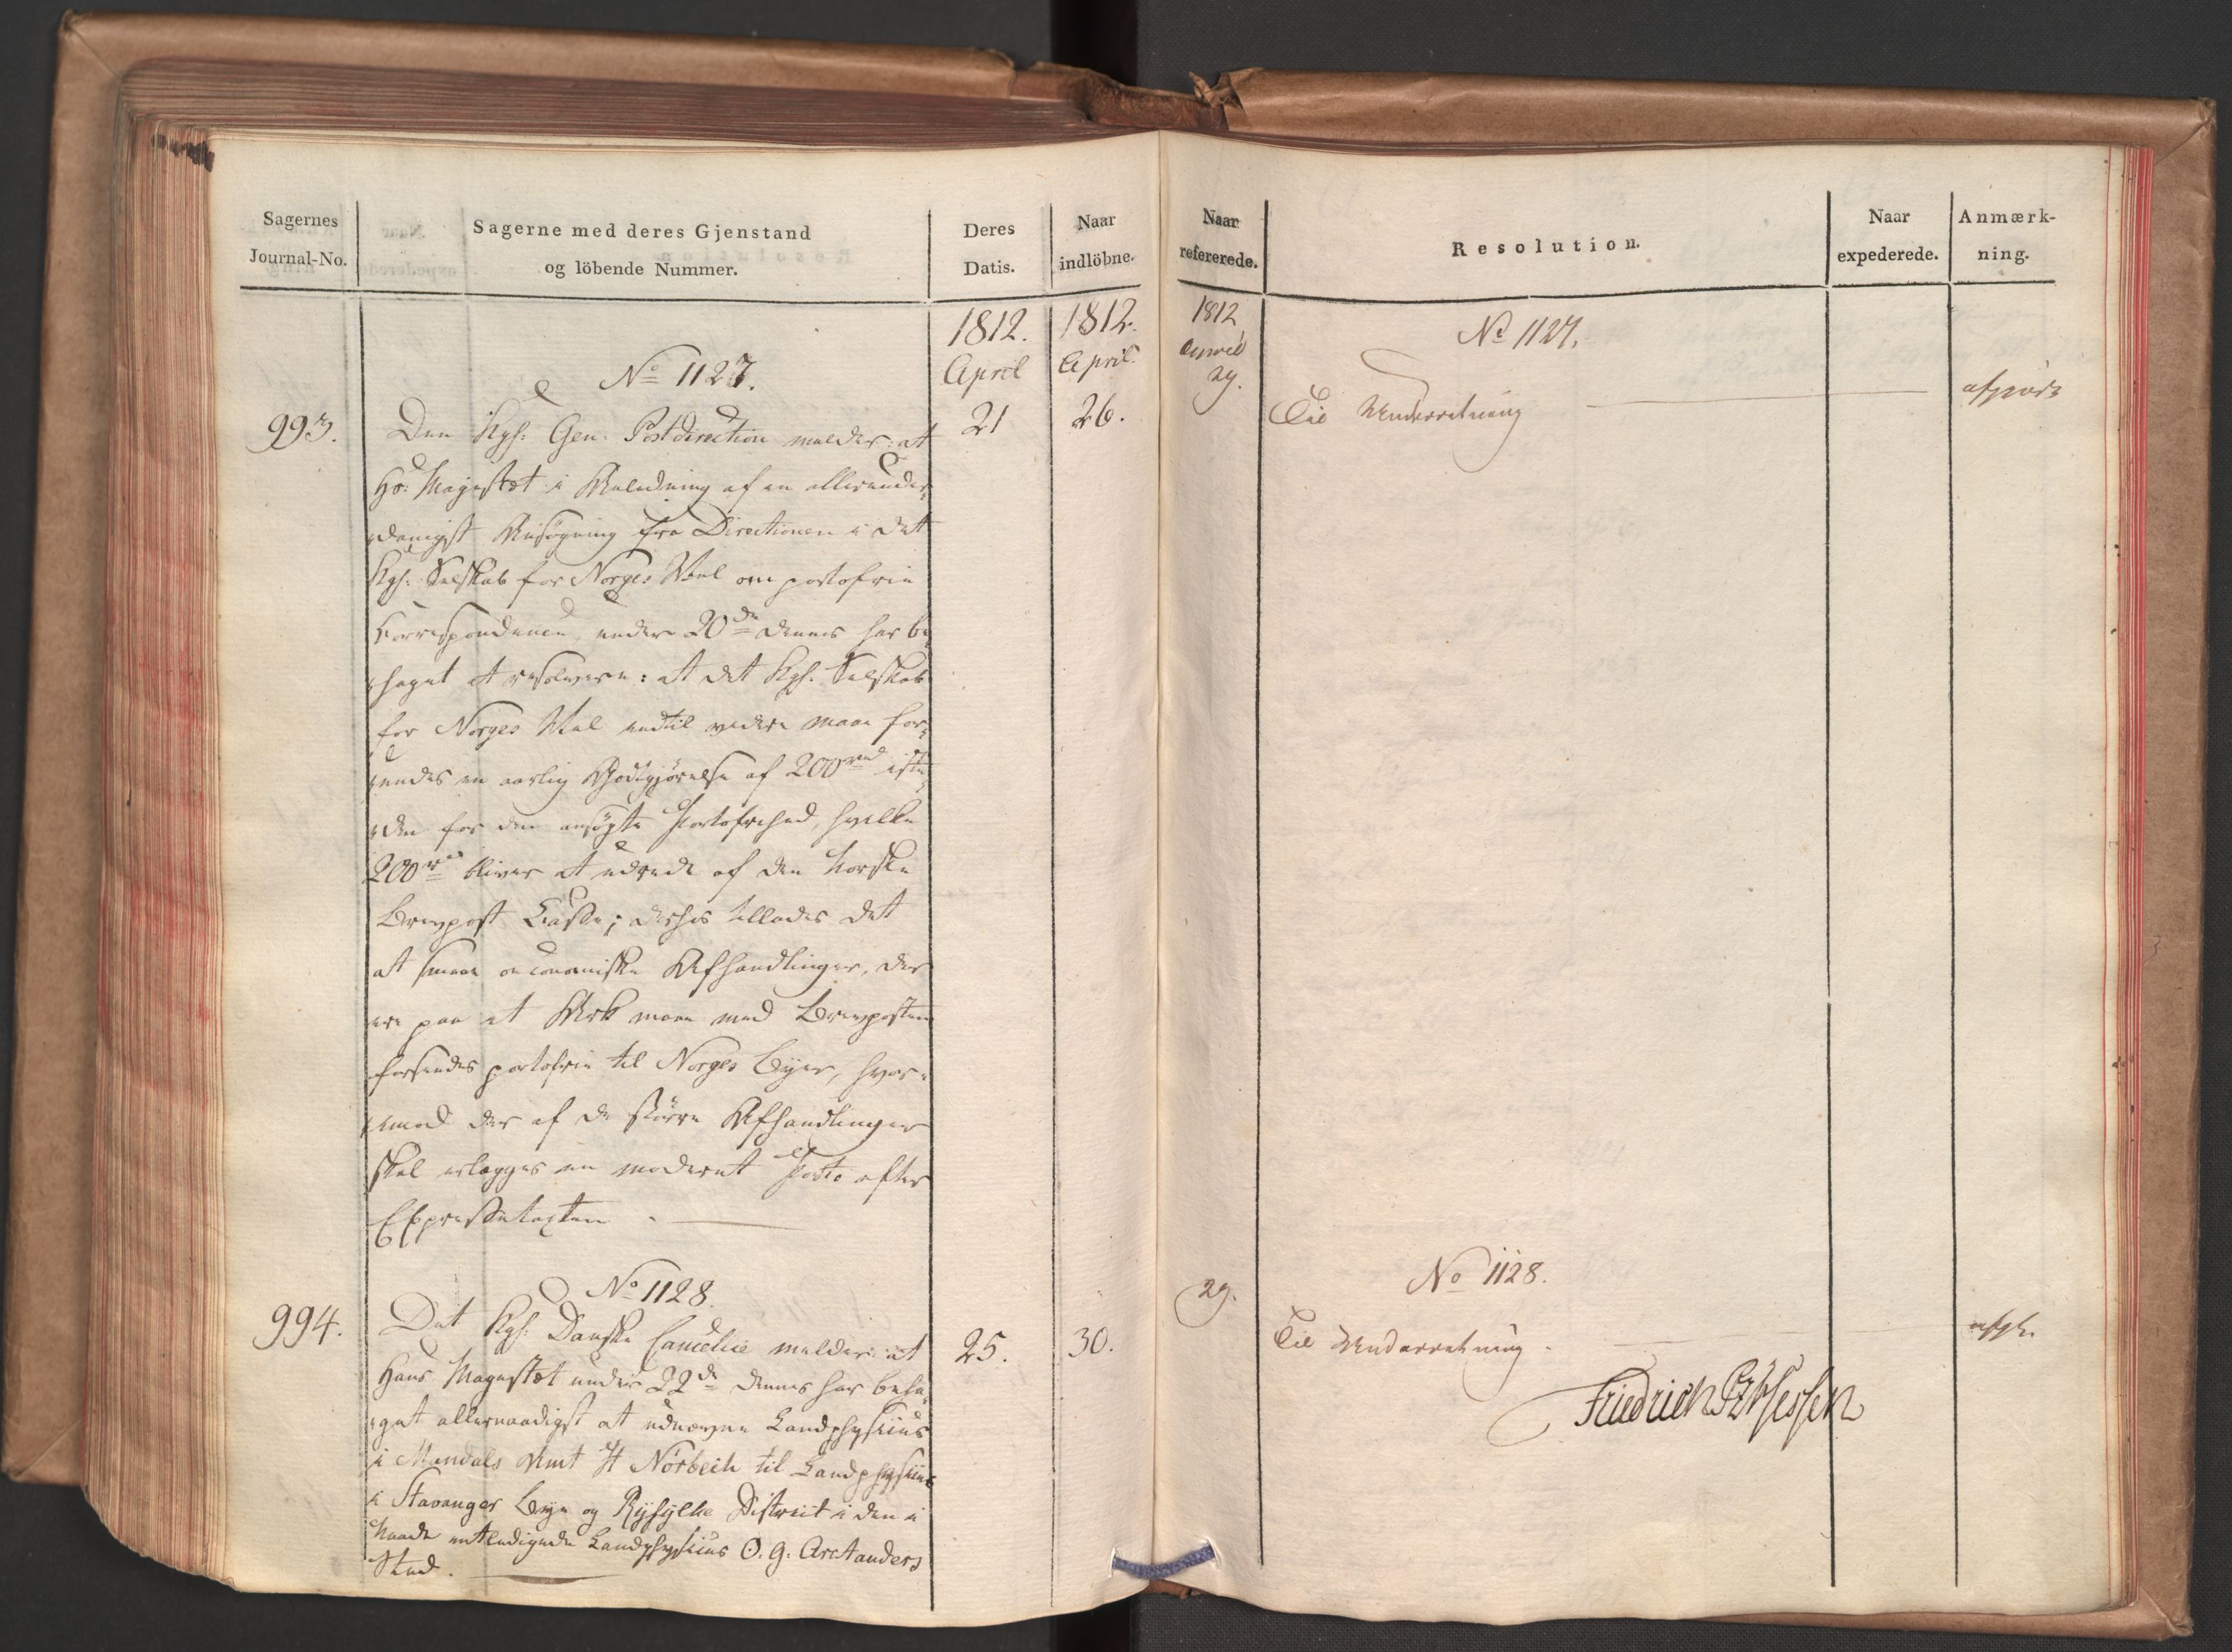 Sagernes
Journal-No.
Sagerne med deres Gjenstand
og löbende Nummer.
Deres
Datis.
Naar
indlöbne.
1812.
April
1812.
April.
No 1127.
993.
21
26.
Den Kgl: Gen: Postdirection melder: at
Hs: Majestæt i Anledning af en allerunder,
,danigst Ansögning fra Directionen i det
Kgl: Selskab for Norges Vel om portofrie
Correspondence, under 20de dennes har be,
,haget at resolvere: at det Kgl. Selskab
for Norges Vel indtil videre maae for,
,undes en aarlig Godtgjörelse af 200 rd iste,
,den for den ansögte Portofrihed, hvilke
200 rd bliver at udrede af den norske
Brevpost Casse; derhos tillades det
at smaae oeconomiske Afhandlinger, der
ere paa et Ark maae med Brevposten
forsendes portofrie til Norges Byer, hvor,
,imod der af de större Afhandlinger
skal erlægges en moderat Porto efter
Expressetaxten.
No 1128.
994.
25.
30.
Det Kgl. Danske Cancelie melder: at
Hans Majestæt under 22de dennes har beha,
,get allernaadigst at udnævne Landphysicus
i Mandals Amt H Nörbech til Landphysicus
i Stavanger Bye og Ryfylke District i den i
Naade entledigede Landphysicus O. G. Arctanders
Sted.
Naar
refererede.
Resolution.
Naar
expederede.
Anmærk-
ning.
1812
April
29.
No 1127.
Til Underretning
afgjört
29.
No 1128.
Til Underretning.
afgk.
Friedrich PzHessen